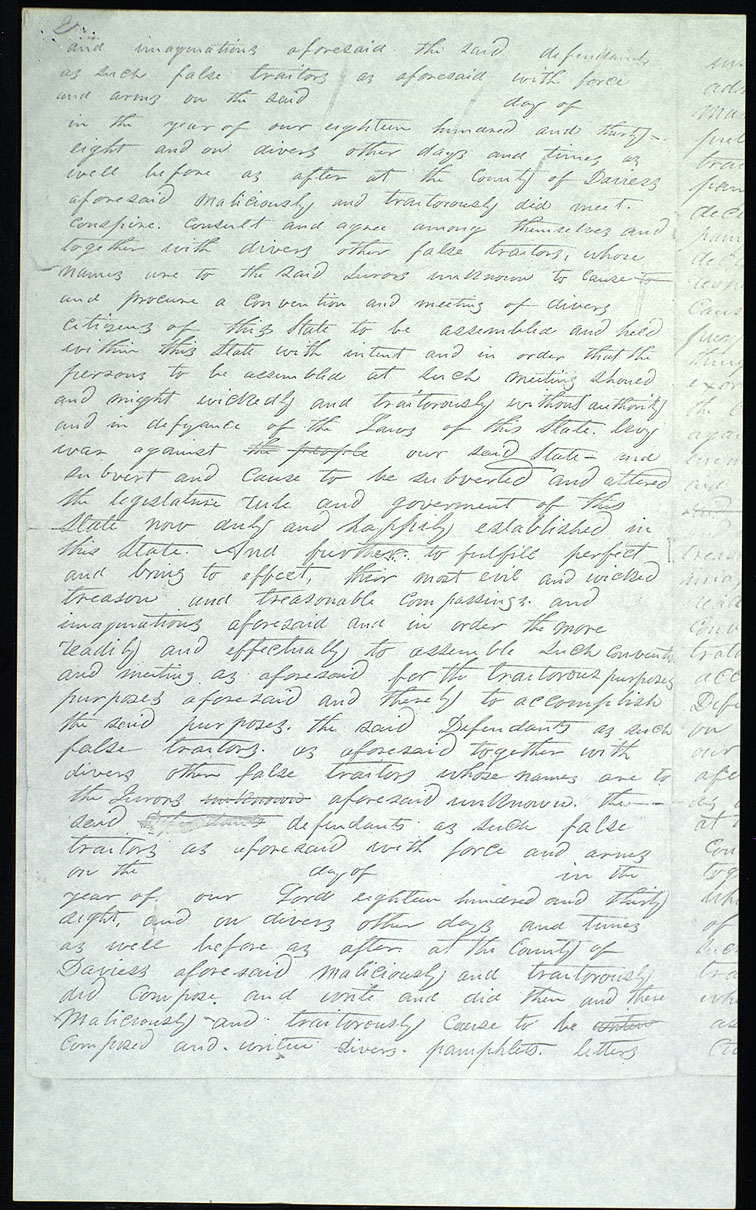 2
and imaginations aforesaid the said defendants
as such false traitors as aforesaid with force
and arms on the said day of
in the year of our eighteen hundred and thirty-
eight and on divers other days and times as
well before as after at the County of Daviess
aforesaid maliciously and traitorously did meet.
Conspire. Consult and agree among themselves and
together with divers other false traitors, whose
names are to the said Jurors unknown to cause to
and procure a convention and meeting of divers
citizens of this State to be assembled and held
within this State with intent and in order that the
persons to be assembled at such meeting should
and might wickedly and traitorously without authority
and in defyance of the Laws of this State. levy
war against the people our said State - and
subvert and cause to be subverted and altered
the legislature rule and goverment of this
State now duly and happily established in
this State. And further. to fulfill perfect
and bring to effect, their most evil and wicked
treason and treasonable compassings. and
imaginations aforesaid and in order the more
readily and effectually to assemble such convention
and meeting as aforesaid for the traitorous purposes
purposes aforesaid and thereby to accomplish
the said purposes. the said Defendants as such
false traitors. as aforesaid together with
divers other false traitors whose names are to
the Jurors unknown aforesaid unknown. the--
said defendants as such false
traitors as aforesaid with force and arms
on the day of in the
year of our Lord eighteen hundred and thirty
eight, and on divers other days and times
as well before as after at the County of
Daviess aforesaid maliciously and traitorously
did compose and write and did then and there
Maliciously and traitorously cause to be written
composed and written divers. pamphlets. letters